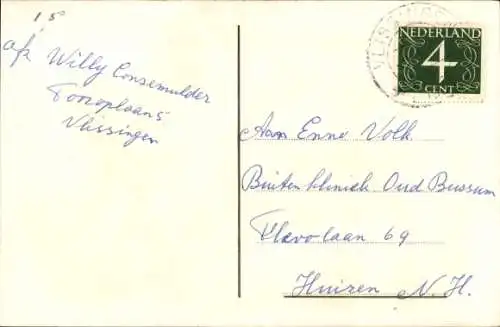 15
afz Willy Consemulder
Tooroplaan 5
Vlissingen
VLISSINGEN
NEDERLAND
4
CENT
Aan Enne Volk.
Buitenkliniek Oud Bussum
Flevolaan 69
Huizen N.H.